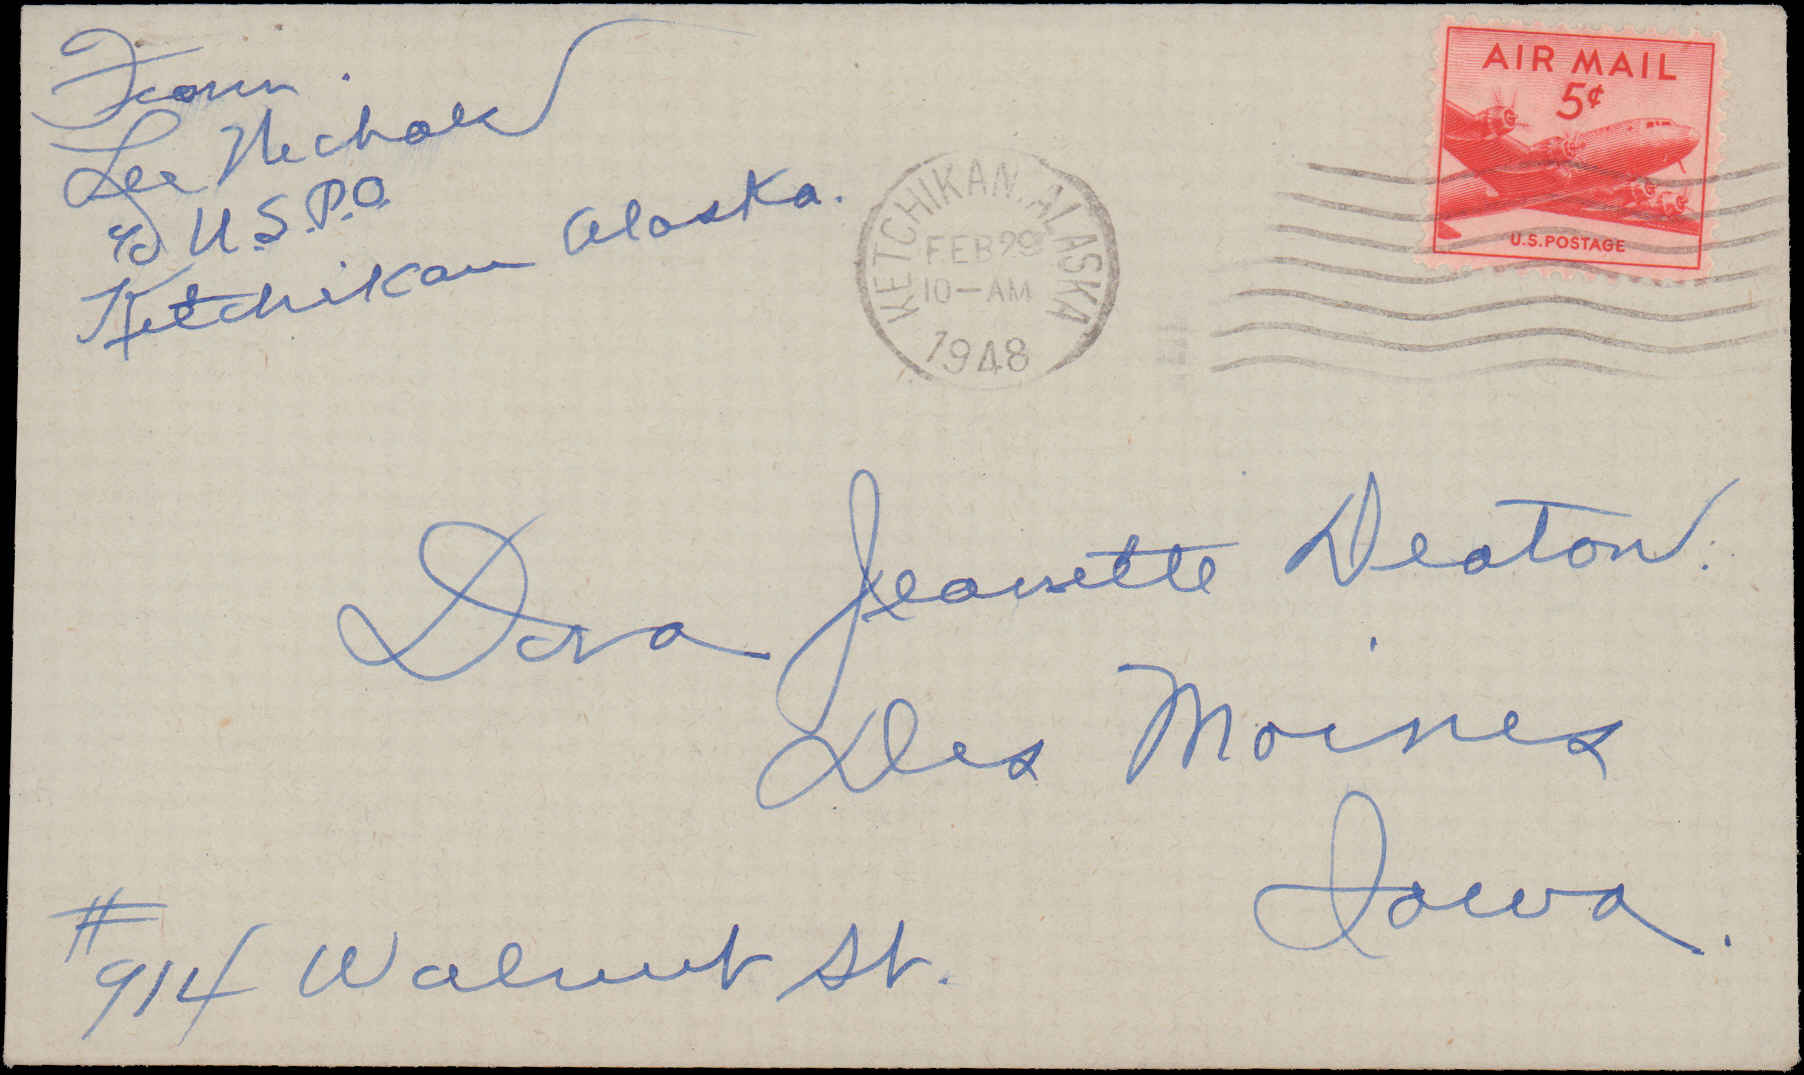 From
Lee Nichols
c/o U.S.P.O.
Ketchikan Alaska.
KETCHIKAN, ALASKA
FEB 29
10-AM
1948
AIR MAIL
5¢
U.S. POSTAGE
Dora Jeanette Deaton.
Des Moines
Iowa.
#914 Walnut St.